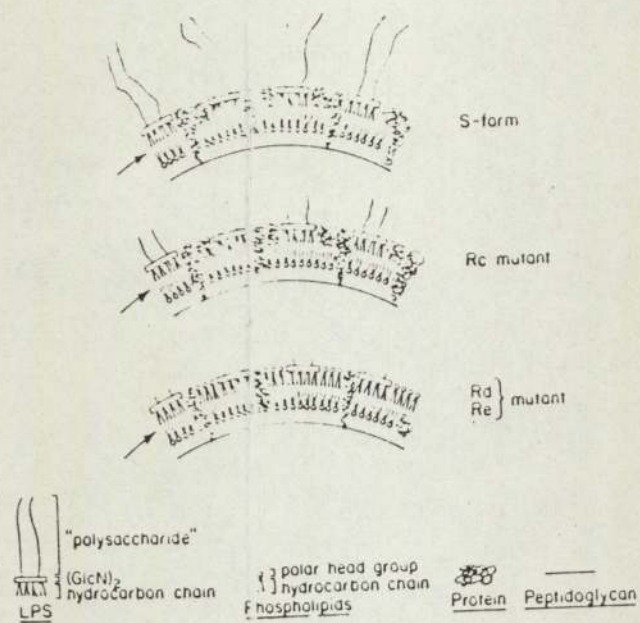 S-form
Rc mutant
Rd
Re } mutant
"polysaccharide"
(GlcN)2
hydrocarbon chain
LPS
polar head group
hydrocarbon chain
Phospholipids
Protein
Peptidoglycan